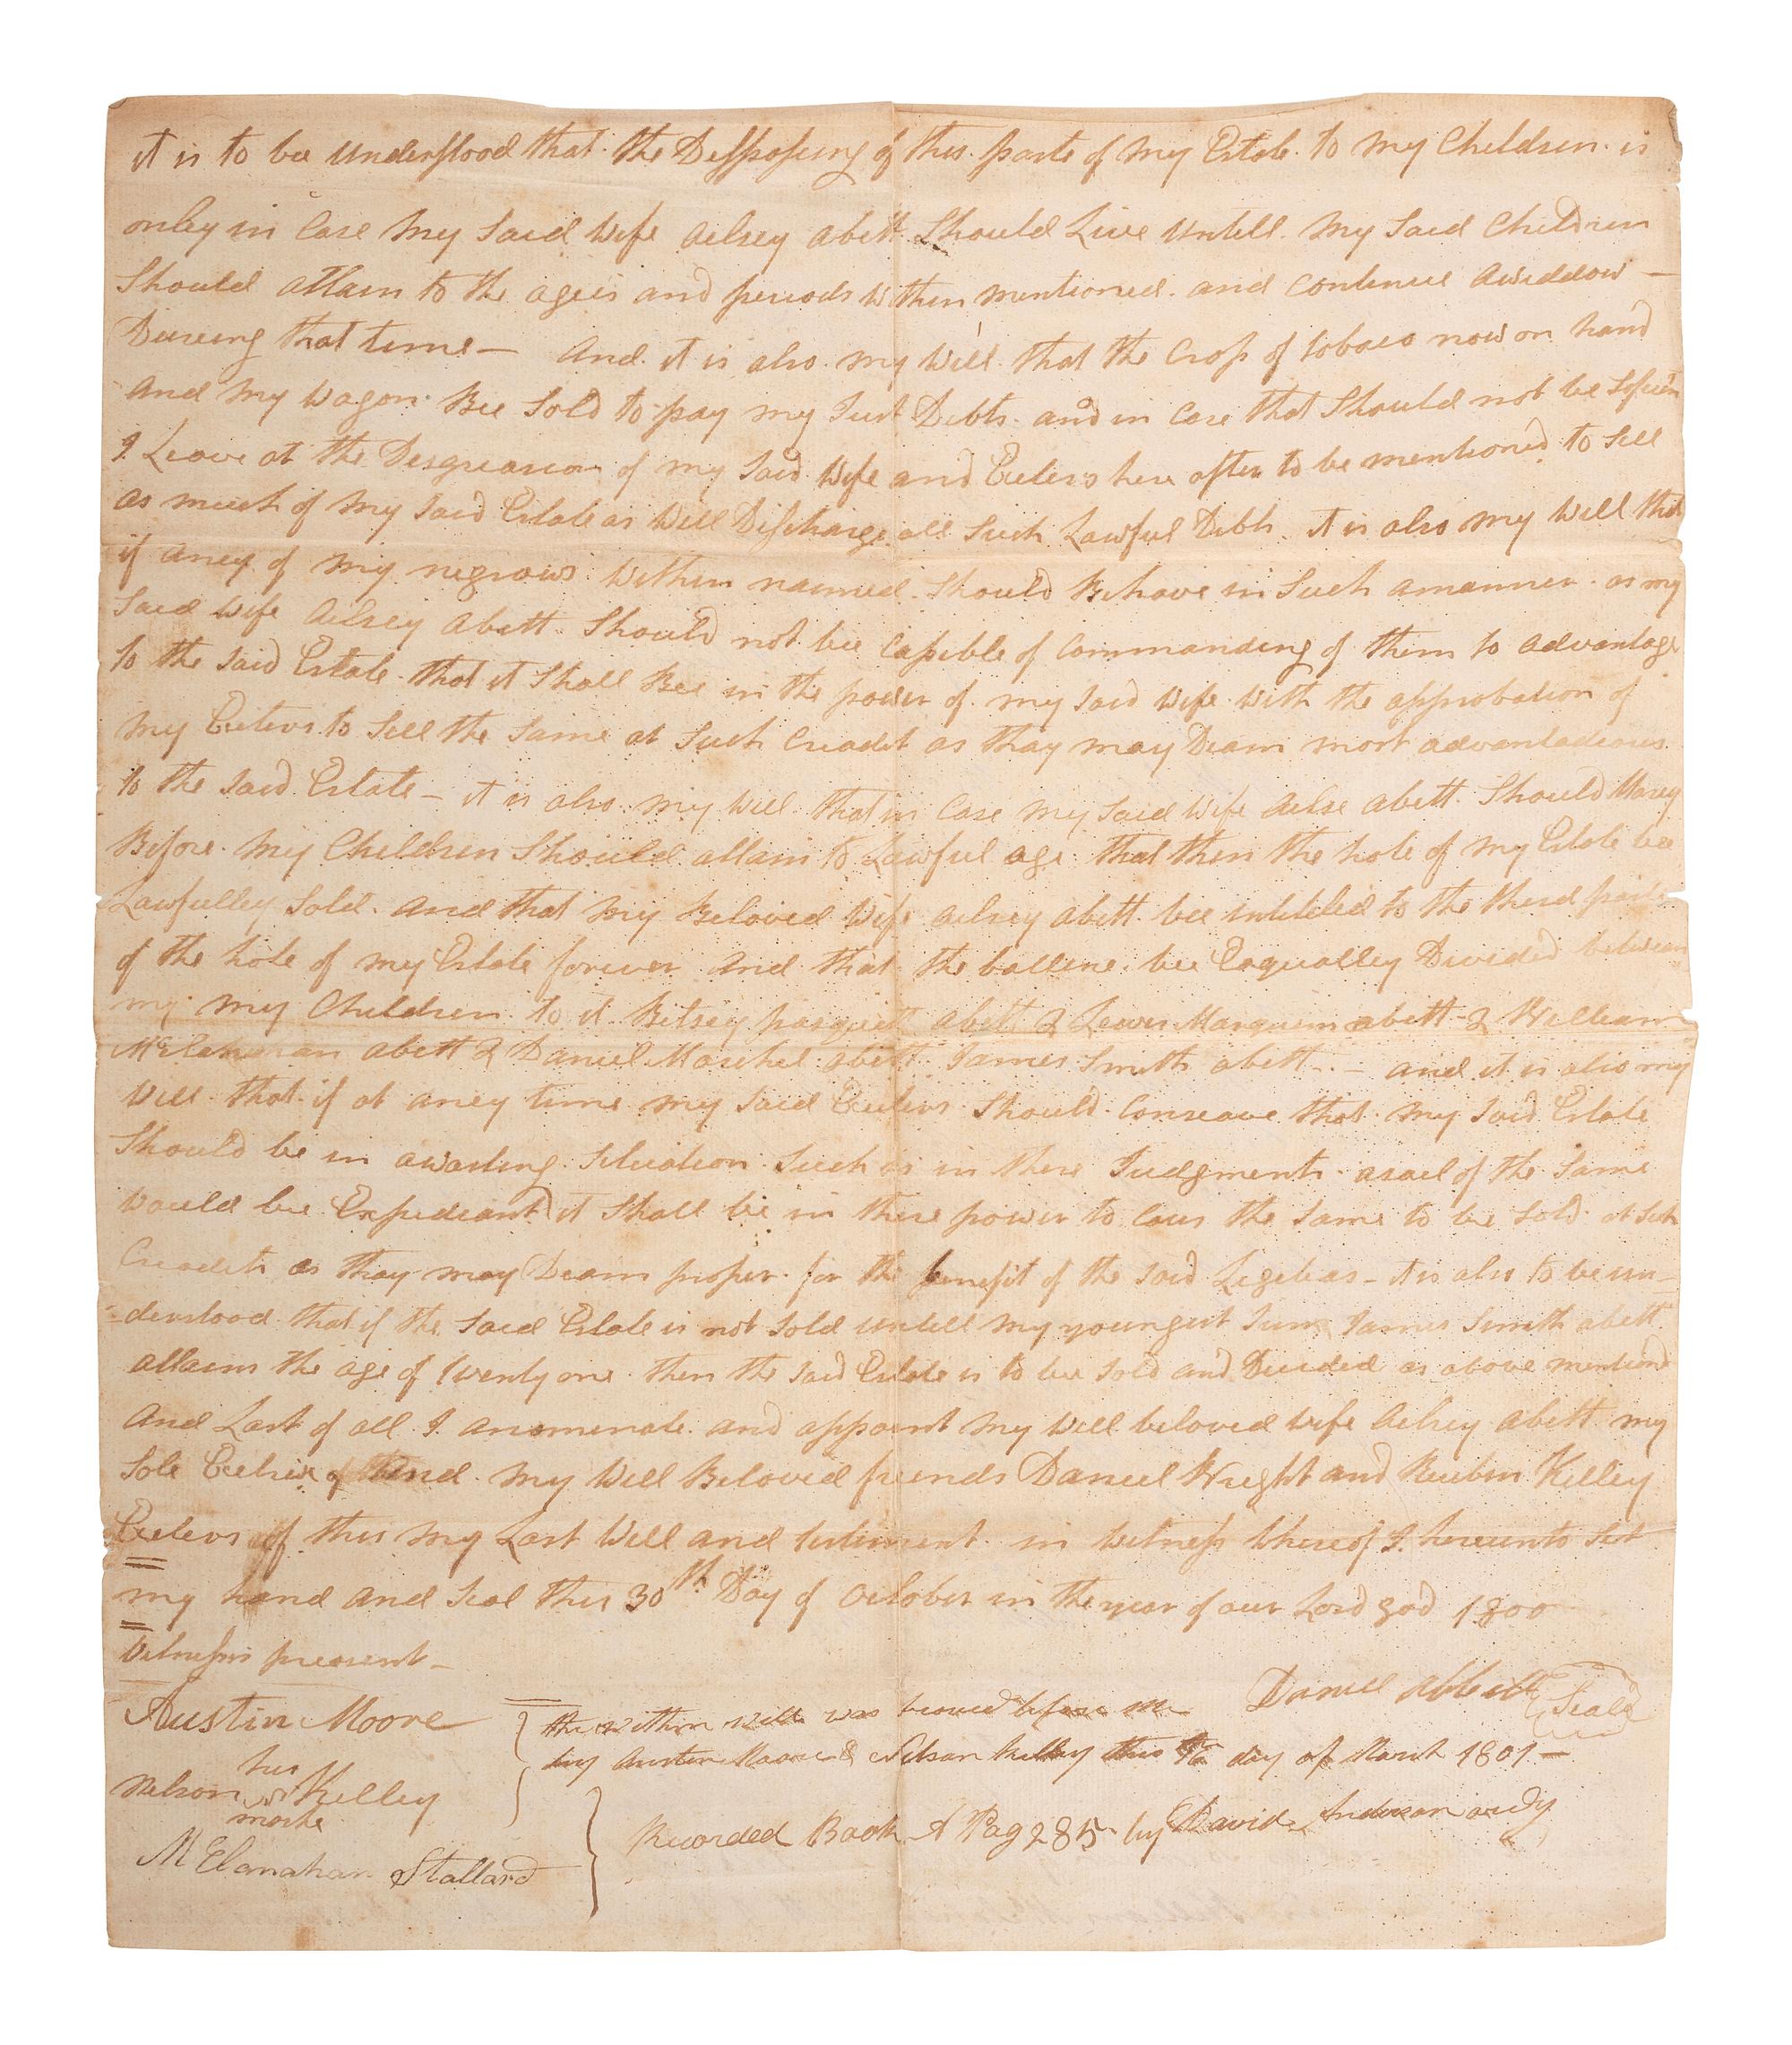 it is to bee understood that the Dessposing of this parte of my Estate to my Children is
onley in Case my Said wife ailsey abett Should Live untill my Said Children
Should attain to the agees and periods within mentioned and Continue a widdow —
Dureing that time — And it is also my will that the Crop of tobaco now on hand
And my wagon Bee Sold to pay my Just Debts and in Case that Should not be
I Leave at the of my Said wife and Exeters here after to be mentioned to Sell
as much of my Said Estate as will Discharge all Such Lawful Debts it is also my will that
if aney of my negrows within named Should Behave in Such a manner as my
Said wife Ailsey Abett Should not bee Capible of Commanding of them to advantage
to the said Estate that it Shall Bee in the power of my Said wife with the approbation of
my Exeters to Sell the Same at Such Creadit as thay may Deam most advantadious
to the Said Estate — it is also my will that in Case my Said wife ailse abett Should Marey
Before my Children Should attain to Lawful age that then the hole of my Estate bee
Lawfulley Sold and that my Beloved wife ailsey abett bee intitled to the third parte
of the hole of my Estate forever and that the ballene bee Eaqualley Divided between
my my Children to it Betsey abett & Lewis abett & William
McClanahan abett & Daniel Marshel abett James Smith abett — and it is also my
will that if at aney time my Said Exeters Should Conseave that my Said Estate
Should be in a wasting Situation Such as in there Judgment asael of the Same
would bee Expediant it Shall be in there power to Caus the Same to be Sold at Sch
Creadit as thay may Deam proper for the benefit of the said Legeteas — it is also to be un-
-derstood that if the Said Estate is not Sold untill my youngest Sun James Smith abett
attains the age of twenty one then the Said Estate is to bee Sold and Devided as above mentiond
And Last of all I anomenate and appoint my well beloved wife Ailsey Abett my
Sole and my Well Beloved friends Daniel Wright and Reubin Kelley
Exeters of this my Last Will and testiment in witness whereof I hereunto Set
my hand and Seal this 30th Day of October in the year of our Lord god 1800
Witnesss present —
Daniel abbett Seale
Austin Moore
his
Nelson Kelley
marke
McClanahan Stallard
the within will was proved before me
by Austin Moore & Nelson Kelley this day of March 1801 —
Recorded Book A Pag 285 by David Anderson ordy